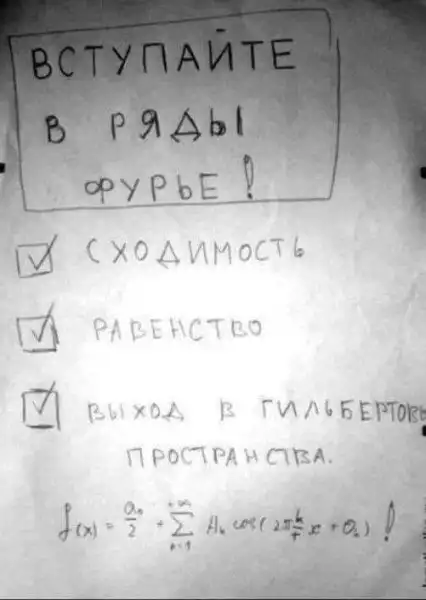 ВСТУПАЙТЕ
В РЯДЫ
ФУРЬЕ!
СХОДИМОСТЬ
РАВЕНСТВО
ВЫХОД В ГИЛЬБЕРТОВЫ
ПРОСТРАНСТВА.
f(x) = a₀/2 + ∑ₖ₌₁⁺∞ Aₖ cos(2π k/τ x + θₖ)!